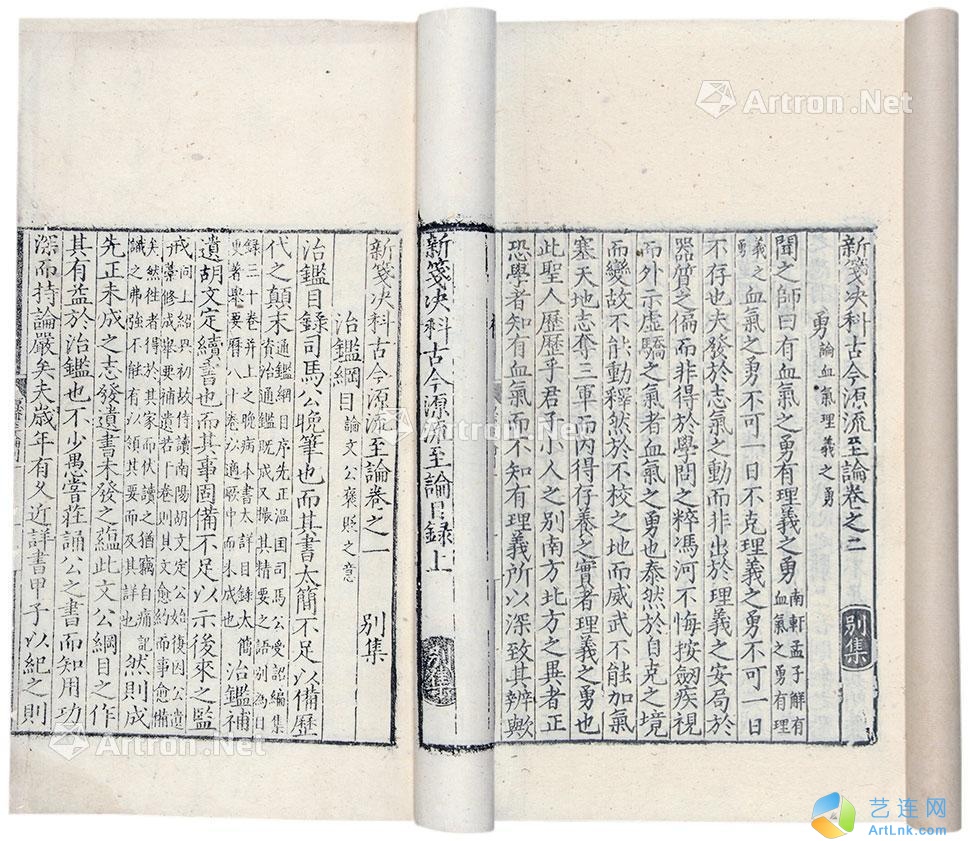 新箋决科古今源流至論卷之二
別集
勇
論血氣理義之勇
聞之師曰有血氣之勇有理義之勇
南軒孟子解有
血氣之勇有理
義之
勇
血氣之勇不可一日不克理義之勇不可一日
不存也夫發於志氣之動而非出於理義之安局於
器質之偏而非得於學問之粹馮河不悔按劔疾視
而外示虚驕之氣者血氣之勇也泰然於自克之境
而變故不能動釋然於不校之地而威武不能加氣
塞天地志奪三軍而内得存養之實者理義之勇也
此聖人歷歷乎君子小人之別南方北方之異者正
恐學者知有血氣而不知有理義所以深致其辨歟
新箋决科古今源流至論目録上
別集
新箋决科古今源流至論卷之一
別集
治鑑綱目
論文公褒貶之意
治鑑目録司馬公晚筆也而其書太簡不足以備歷
代之顛末
通鑑綱目序先正温国司馬公受詔編集
資治通鑑既成又撮其精要之語别為目
録三十卷并上之晚病本書太詳目録太簡
更著舉要暦八十卷以適厥中而未成也
治鑑補
遺胡文定續書也而其事固備不足以示後來之監
戒
同上紹興初故侍讀南陽胡文定公始復因公遺
藁脩成舉要補遺若干卷則其文愈約而事愈備
矣然往者得於其家而伏讀之猶竊自病記
識之弗強不能有以領其要而及其詳也
然則成
先正未成之志發遺書未發之蘊此文公綱目之作
其有益於治鑑也不少愚嘗莊誦公之書而知用功
深而持論嚴矣夫歲年有久近詳書甲子以紀之則
Artron.Net
Artron.Net
Artron.Net
Artron.Net
艺连网
ArtLnk.com